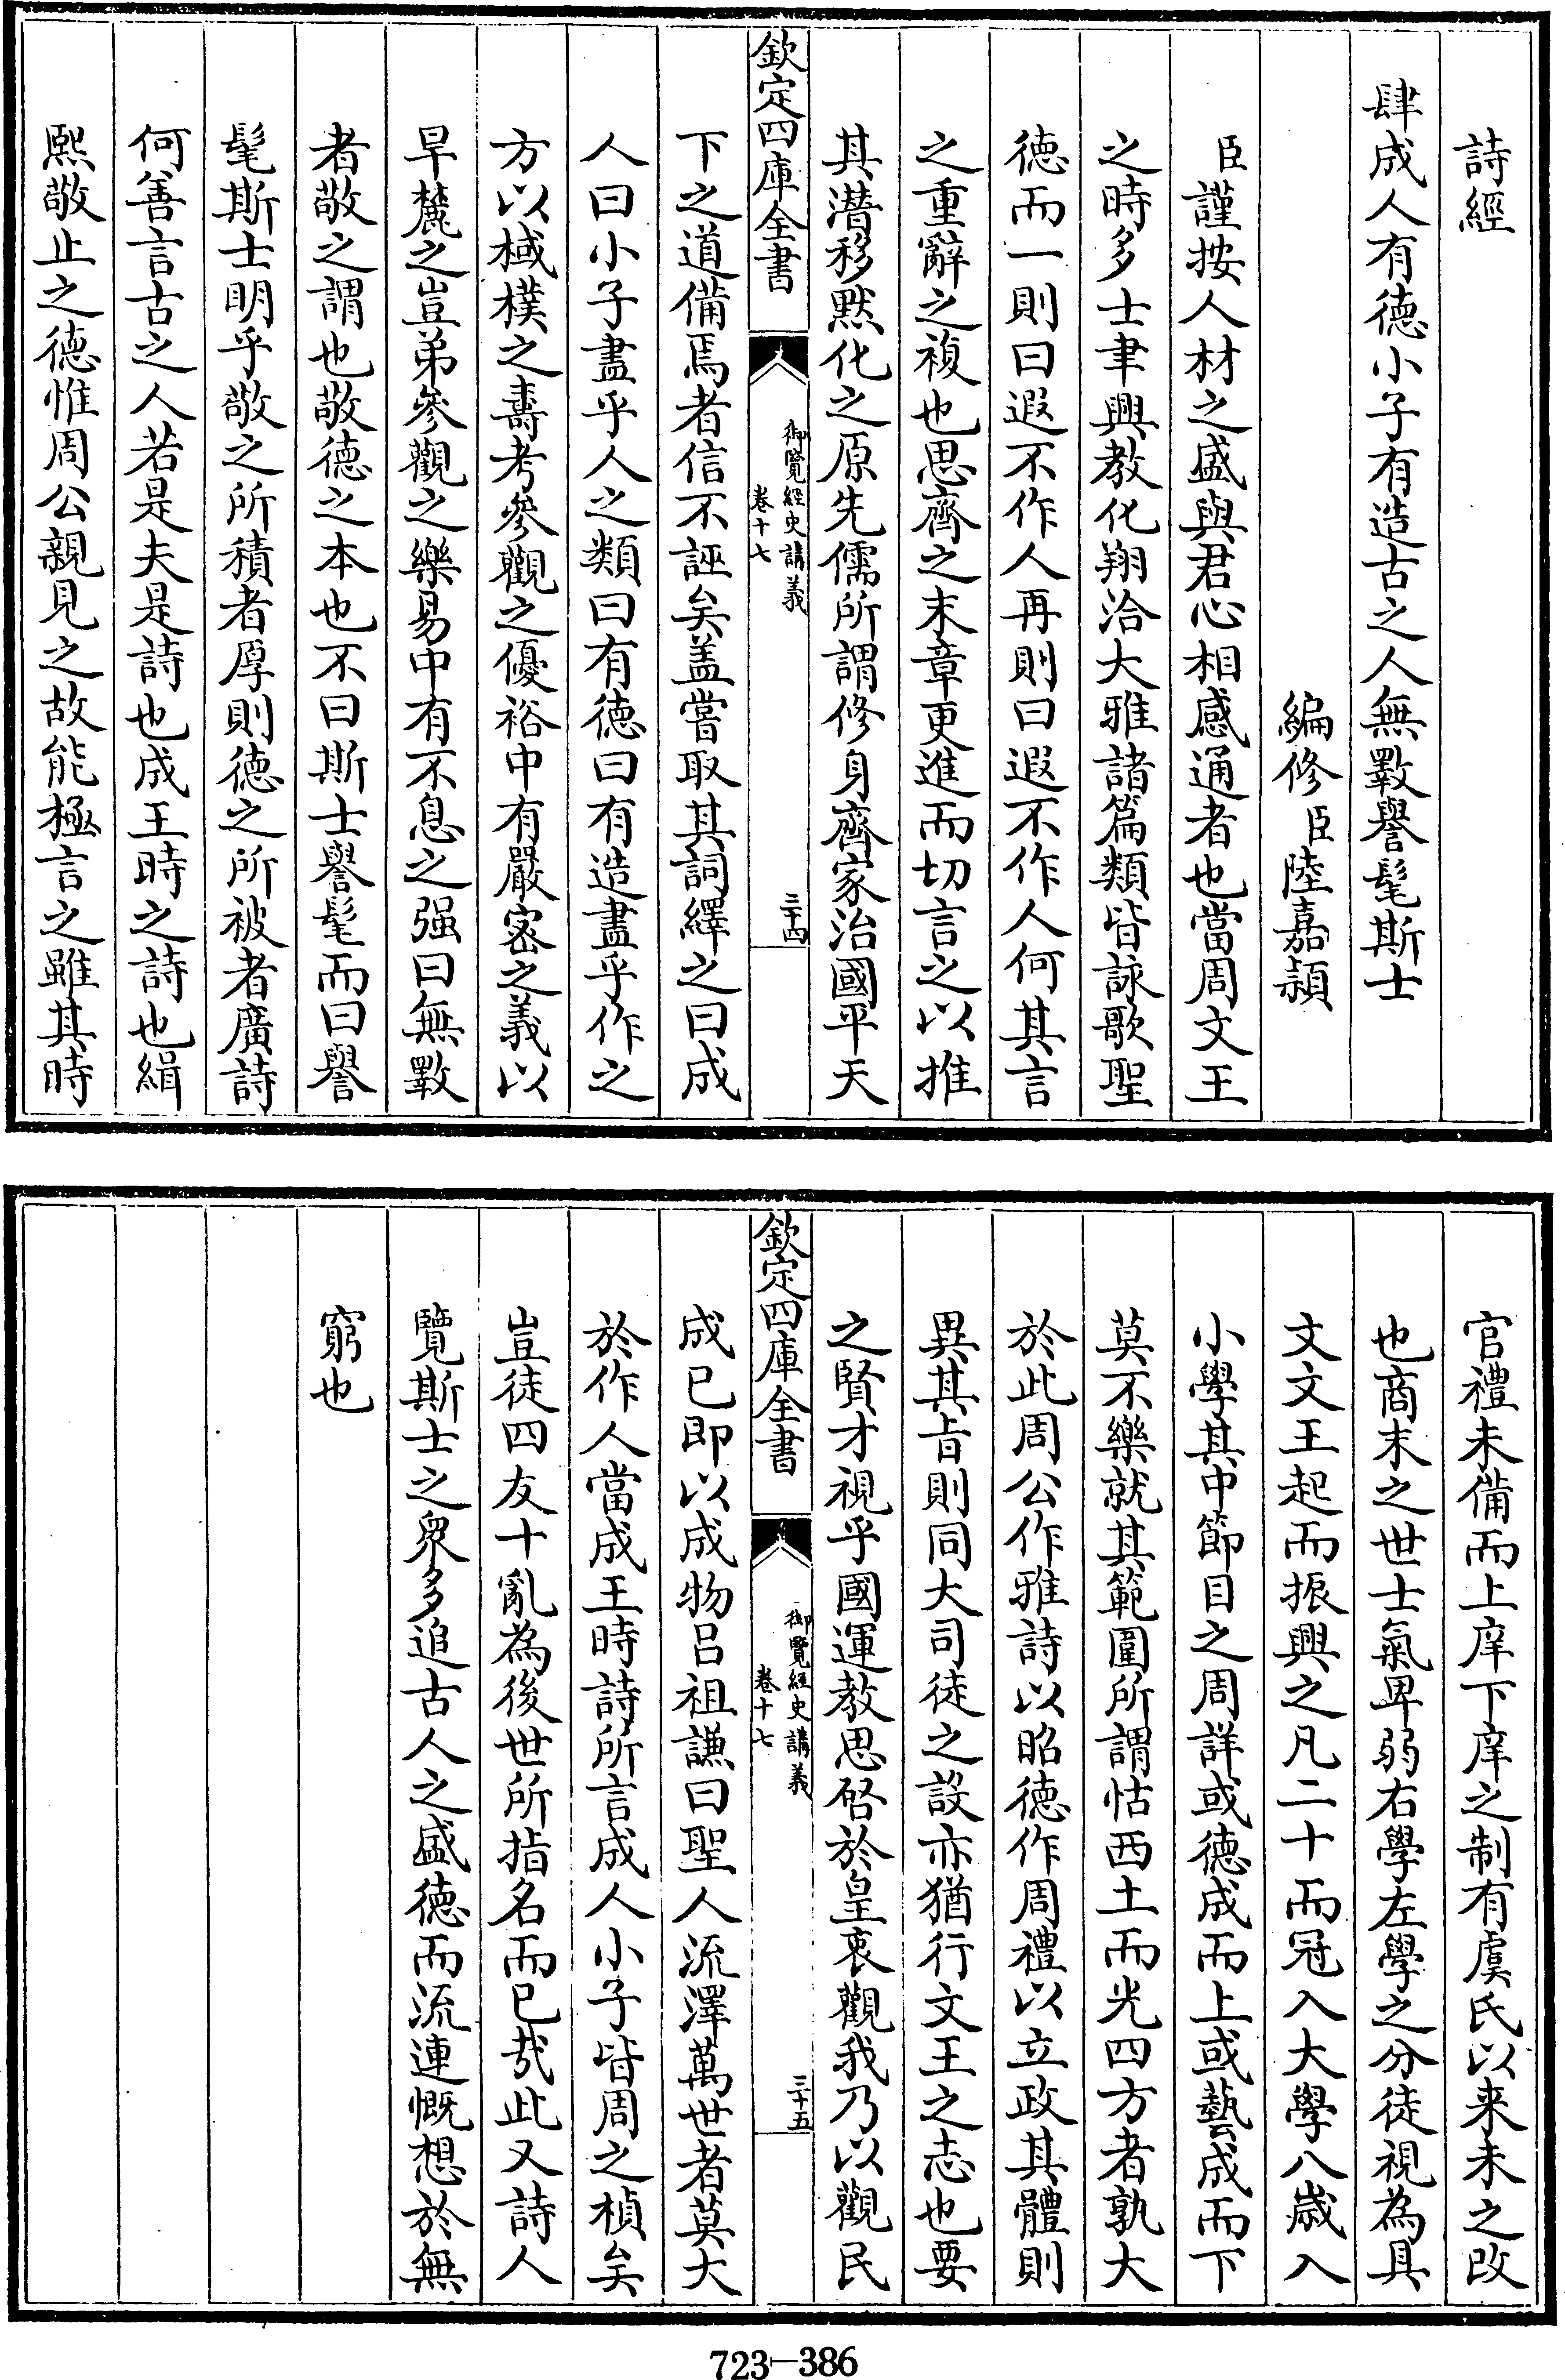 詩經
肆成人有德小子有造古之人無斁譽髦斯士
編修臣陸嘉頴
臣謹按人材之盛與君心相感通者也當周文王
之時多士聿興教化翔洽大雅諸篇類皆詠歌聖
德而一則曰遐不作人再則曰遐不作人何其言
之重辭之複也思齊之末章更進而切言之以推
其潛移默化之原先儒所謂修身齊家治國平天
欽定四庫全書
御覽經史講義
卷十七
三十四
下之道備焉者信不誣矣蓋嘗取其詞繹之曰成
人曰小子盡乎人之類曰有德曰有造盡乎作之
方以棫樸之壽考參觀之優裕中有嚴密之義以
旱麓之豈弟參觀之樂易中有不息之强曰無斁
者敬之謂也敬德之本也不曰斯士譽髦而曰譽
髦斯士明乎敬之所積者厚則德之所被者廣詩
何善言古之人若是夫是詩也成王時之詩也緝
熙敬止之德惟周公親見之故能極言之雖其時
官禮未備而上庠下庠之制有虞氏以来未之改
也商末之世士氣卑弱右學左學之分徒視為具
文文王起而振興之凡二十而冠入大學八歲入
小學其中節目之周詳或德成而上或藝成而下
莫不樂就其範圍所謂怙西土而光四方者孰大
於此周公作雅詩以昭德作周禮以立政其體則
異其旨則同大司徒之設亦猶行文王之志也要
之賢才視乎國運教思啓於皇衷觀我乃以觀民
欽定四庫全書
御覽經史講義
卷十七
三十五
成已即以成物呂祖謙曰聖人流澤萬世者莫大
於作人當成王時詩所言成人小子皆周之楨矣
豈徒四友十亂為後世所指名而已哉此又詩人
覽斯士之衆多追古人之盛德而流連慨想於無
窮也
723-386